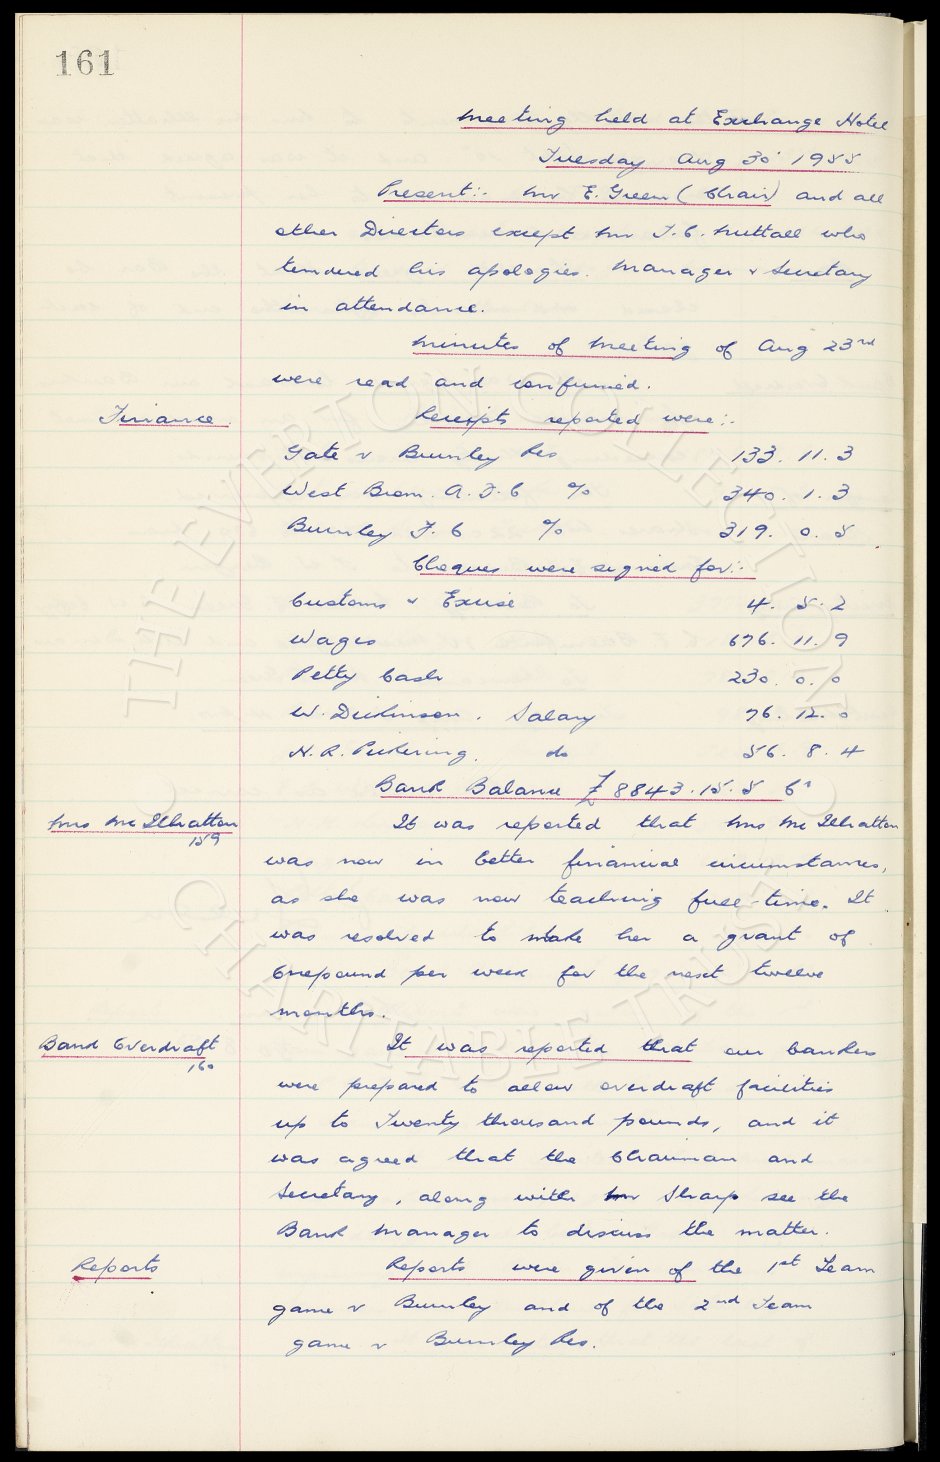 161
Meeting held at Exchange Hotel
Tuesday Aug 30 1955
Present:- Mr E. Green (Chair) and all
other Directors except Mr T.C. Nuttall who
tendered his apologies. Manager & Secretary
in attendance.
Minutes of Meeting of Aug 23rd
were read and confirmed.
Finance. Receipts reported were:-
Gate v Burnley Res 133. 11. 3
West Brom. A.F.C % 340. 1. 3
Burnley F.C % 319. 0. 5
Cheques were signed for:-
Customs & Excise 4. 5. 2
Wages 676. 11. 9
Petty Cash 230. 0. 0
W. Dickinson. Salary 76. 12. 0
H.R. Pickering. do 56. 8. 4
Bank Balance £8843. 15. 5 Cr
Mrs McIlhatton It was reported that Mrs McIlhatton
159
was now in better financial circumstances,
as she was now teaching full-time. It
was resolved to make her a grant of
Onepound per week for the next twelve
months.
Bank Overdraft It was reported that our bankers
160
were prepared to allow overdraft facilities
up to Twenty thousand pounds, and it
was agreed that the Chairman and
Secretary, along with Mr Sharp see the
Bank Manager to discuss the matter.
Reports Reports were given of the 1st Team
game v Burnley and of the 2nd Team
game v Burnley Res.
THE EVERTON COLLECTION
CHARITABLE TRUST